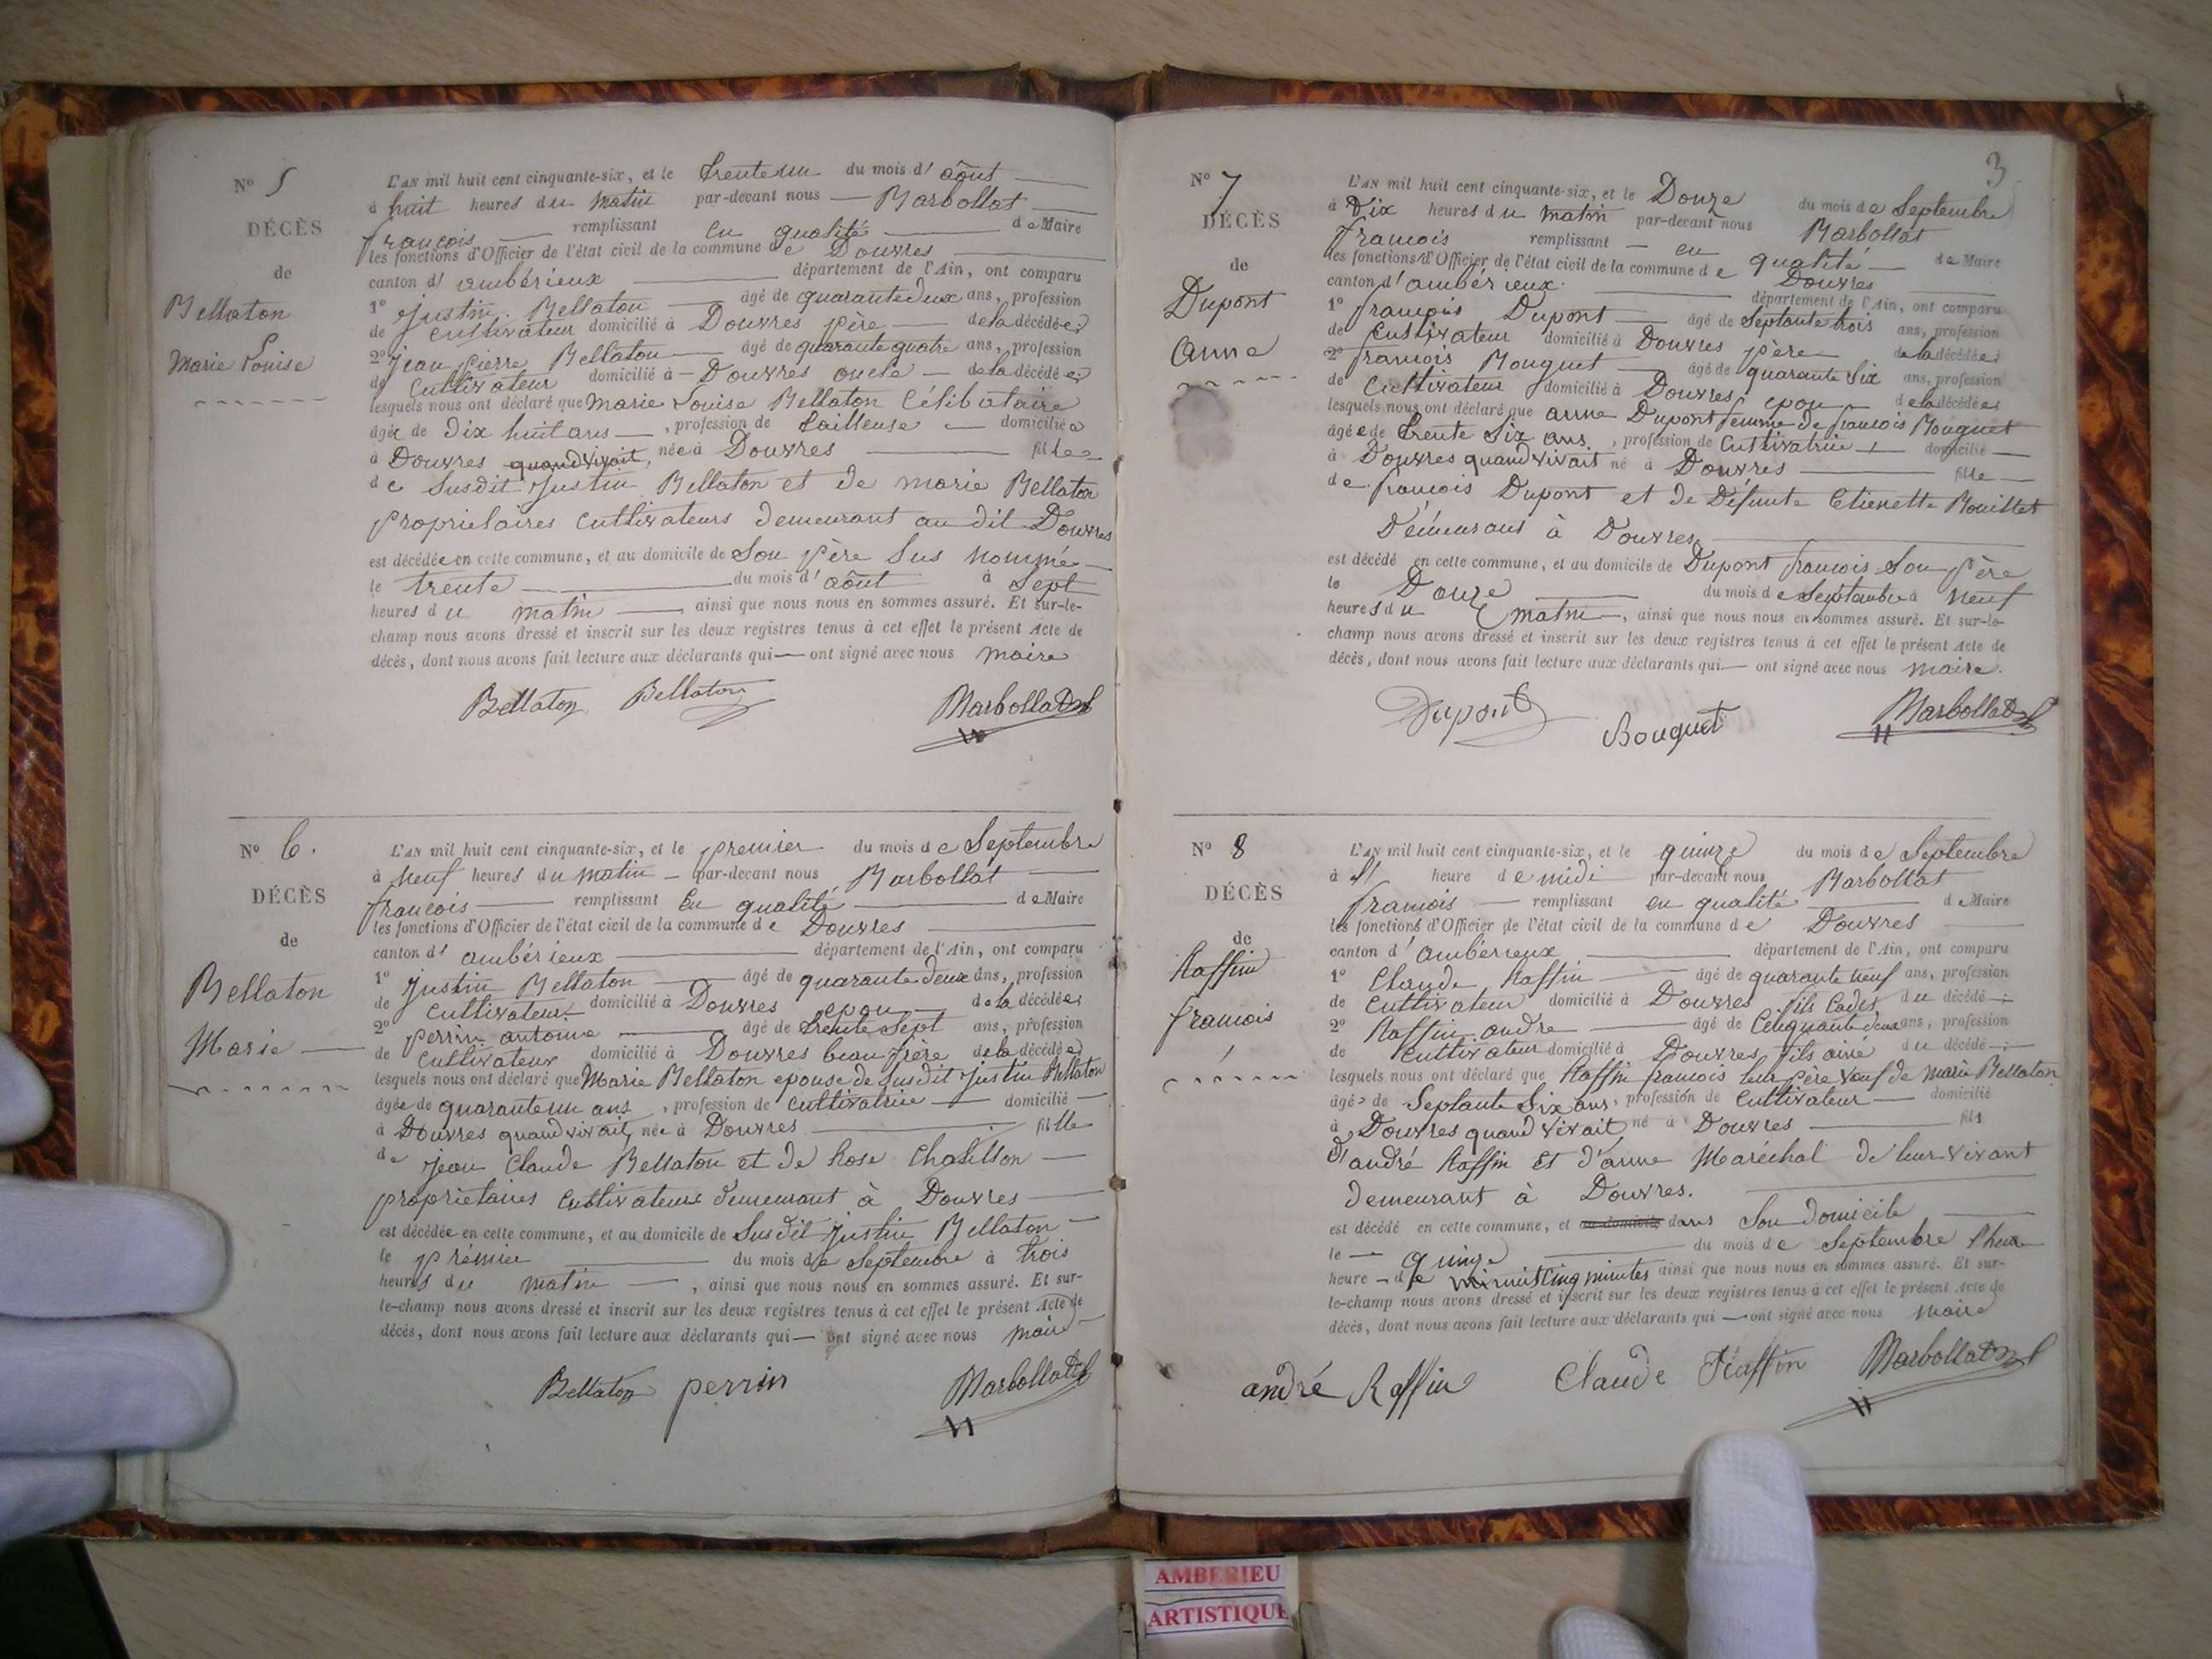 N° 5
DÉCÈS
de
Bellaton
Marie Louise
L'AN mil huit cent cinquante-six, et le trente un du mois d'aôut
à huit heures du matin par-devant nous Marbollat
françois remplissant en qualité de Maire
les fonctions d'Officier de l'état civil de la commune de Douvres
canton d'ambérieux département de l'Ain, ont comparu
1° Justin Bellaton âgé de quarante deux ans, profession
de cultivateur domicilié à Douvres père de la décédée;
2° Jean Pierre Bellaton âgé de quarante quatre ans, profession
de Cultivateur domicilié à Douvres oncle de la décédée;
lesquels nous ont déclaré que Marie Louise Bellaton Célibataire
âgée de dix huit ans, profession de tailleuse domiciliée
à Douvres quand vivait, née à Douvres fille
de susdit Justin Bellaton et de marie Bellaton
propriétaires cultivateurs demeurant au dit Douvres
est décédée en cette commune, et au domicile de Son père sus nommé
le trente du mois d'aôut à Sept
heures du matin, ainsi que nous nous en sommes assuré. Et sur-le-
champ nous avons dressé et inscrit sur les deux registres tenus à cet effet le présent Acte de
décès, dont nous avons fait lecture aux déclarants qui ont signé avec nous maire
Bellaton Bellaton Marbollat
N° 6.
DÉCÈS
de
Bellaton
Marie
L'AN mil huit cent cinquante-six, et le premier du mois de Septembre
à neuf heures du matin par-devant nous Marbollat
françois remplissant En qualité de Maire
les fonctions d'Officier de l'état civil de la commune de Douvres
canton d'ambérieux département de l'Ain, ont comparu
1° Justin Bellaton âgé de quarante deux ans, profession
de cultivateur domicilié à Douvres epoux de la décédée;
2° perrin antoine âgé de trente Sept ans, profession
de cultivateur domicilié à Douvres beau frère de la décédée
lesquels nous ont déclaré que Marie Bellaton epouse de susdit Justin Bellaton
âgée de quarante un ans, profession de cultivatrice domicilié
à Douvres quand vivait, née à Douvres fille
de jean Claude Bellaton et de Rose Chatillon
propriétaires cultivateurs demeurant à Douvres
est décédée en cette commune, et au domicile de Susdit Justin Bellaton
le prémier du mois de Septembre à trois
heures du matin, ainsi que nous nous en sommes assuré. Et sur-
le-champ nous avons dressé et inscrit sur les deux registres tenus à cet effet le présent Acte de
décès, dont nous avons fait lecture aux déclarants qui ont signé avec nous maire
Bellaton perrin Marbollat
3
N° 7
DÉCÈS
de
Dupont
Anne
L'AN mil huit cent cinquante-six, et le Douze du mois de Septembre
à Dix heures du matin par-devant nous Marbollat
françois remplissant en qualité de Maire
les fonctions d'Officier de l'état civil de la commune de Douvres
canton d'ambérieux département de l'Ain, ont comparu
1° françois Dupont âgé de Septante trois ans, profession
de Cultivateur domicilié à Douvres père de la décédée;
2° françois Bouquet âgé de quarante Six ans, profession
de Cultivateur domicilié à Douvres, epoux de la décédée;
lesquels nous ont déclaré que anne Dupont femme de françois Bouquet
âgée de trente Six ans, profession de Cultivatrice domicilié
à Douvres quand vivait né à Douvres fille
de françois Dupont et de Défunte Etienette Bouillet
Démeurant à Douvres.
est décédé en cette commune, et au domicile de Dupont françois Son père
le Douze du mois de Septembre à neuf
heures du matin, ainsi que nous nous en sommes assuré. Et sur-le-
champ nous avons dressé et inscrit sur les deux registres tenus à cet effet le présent Acte de
décès, dont nous avons fait lecture aux déclarants qui ont signé avec nous maire.
Dupont Bouquet Marbollat
N° 8
DÉCÈS
de
Raffin
françois
L'AN mil huit cent cinquante-six, et le quinze du mois de Septembre
à heure de midi par-devant nous Marbollat
françois remplissant en qualité de Maire
les fonctions d'Officier de l'état civil de la commune de Douvres
canton d'ambérieux département de l'Ain, ont comparu
1° Claude Raffin âgé de quarante neuf ans, profession
de cultivateur domicilié à Douvres fils Cadet du décédé;
2° Raffin andré âgé de Cinquante deux ans, profession
de Cultivateur domicilié à Douvres fils ainé du décédé;
lesquels nous ont déclaré que Raffin françois leur père veuf de marie Bellaton
âgé de Septante Six ans, profession de Cultivateur domicilié
à Douvres quand vivait né à Douvres fils
d'andré Raffin Et d'anne Maréchal de leur vivant
demeurant à Douvres.
est décédé en cette commune, et au domicile dans Son domicile
le quinze du mois de Septembre
heure de minuit cinq minutes ainsi que nous nous en sommes assuré. Et sur-
le-champ nous avons dressé et inscrit sur les deux registres tenus à cet effet le présent Acte de
décès, dont nous avons fait lecture aux déclarants qui ont signé avec nous maire
andré Raffin Claude Raffin Marbollat
AMBERIEU
ARTISTIQUE